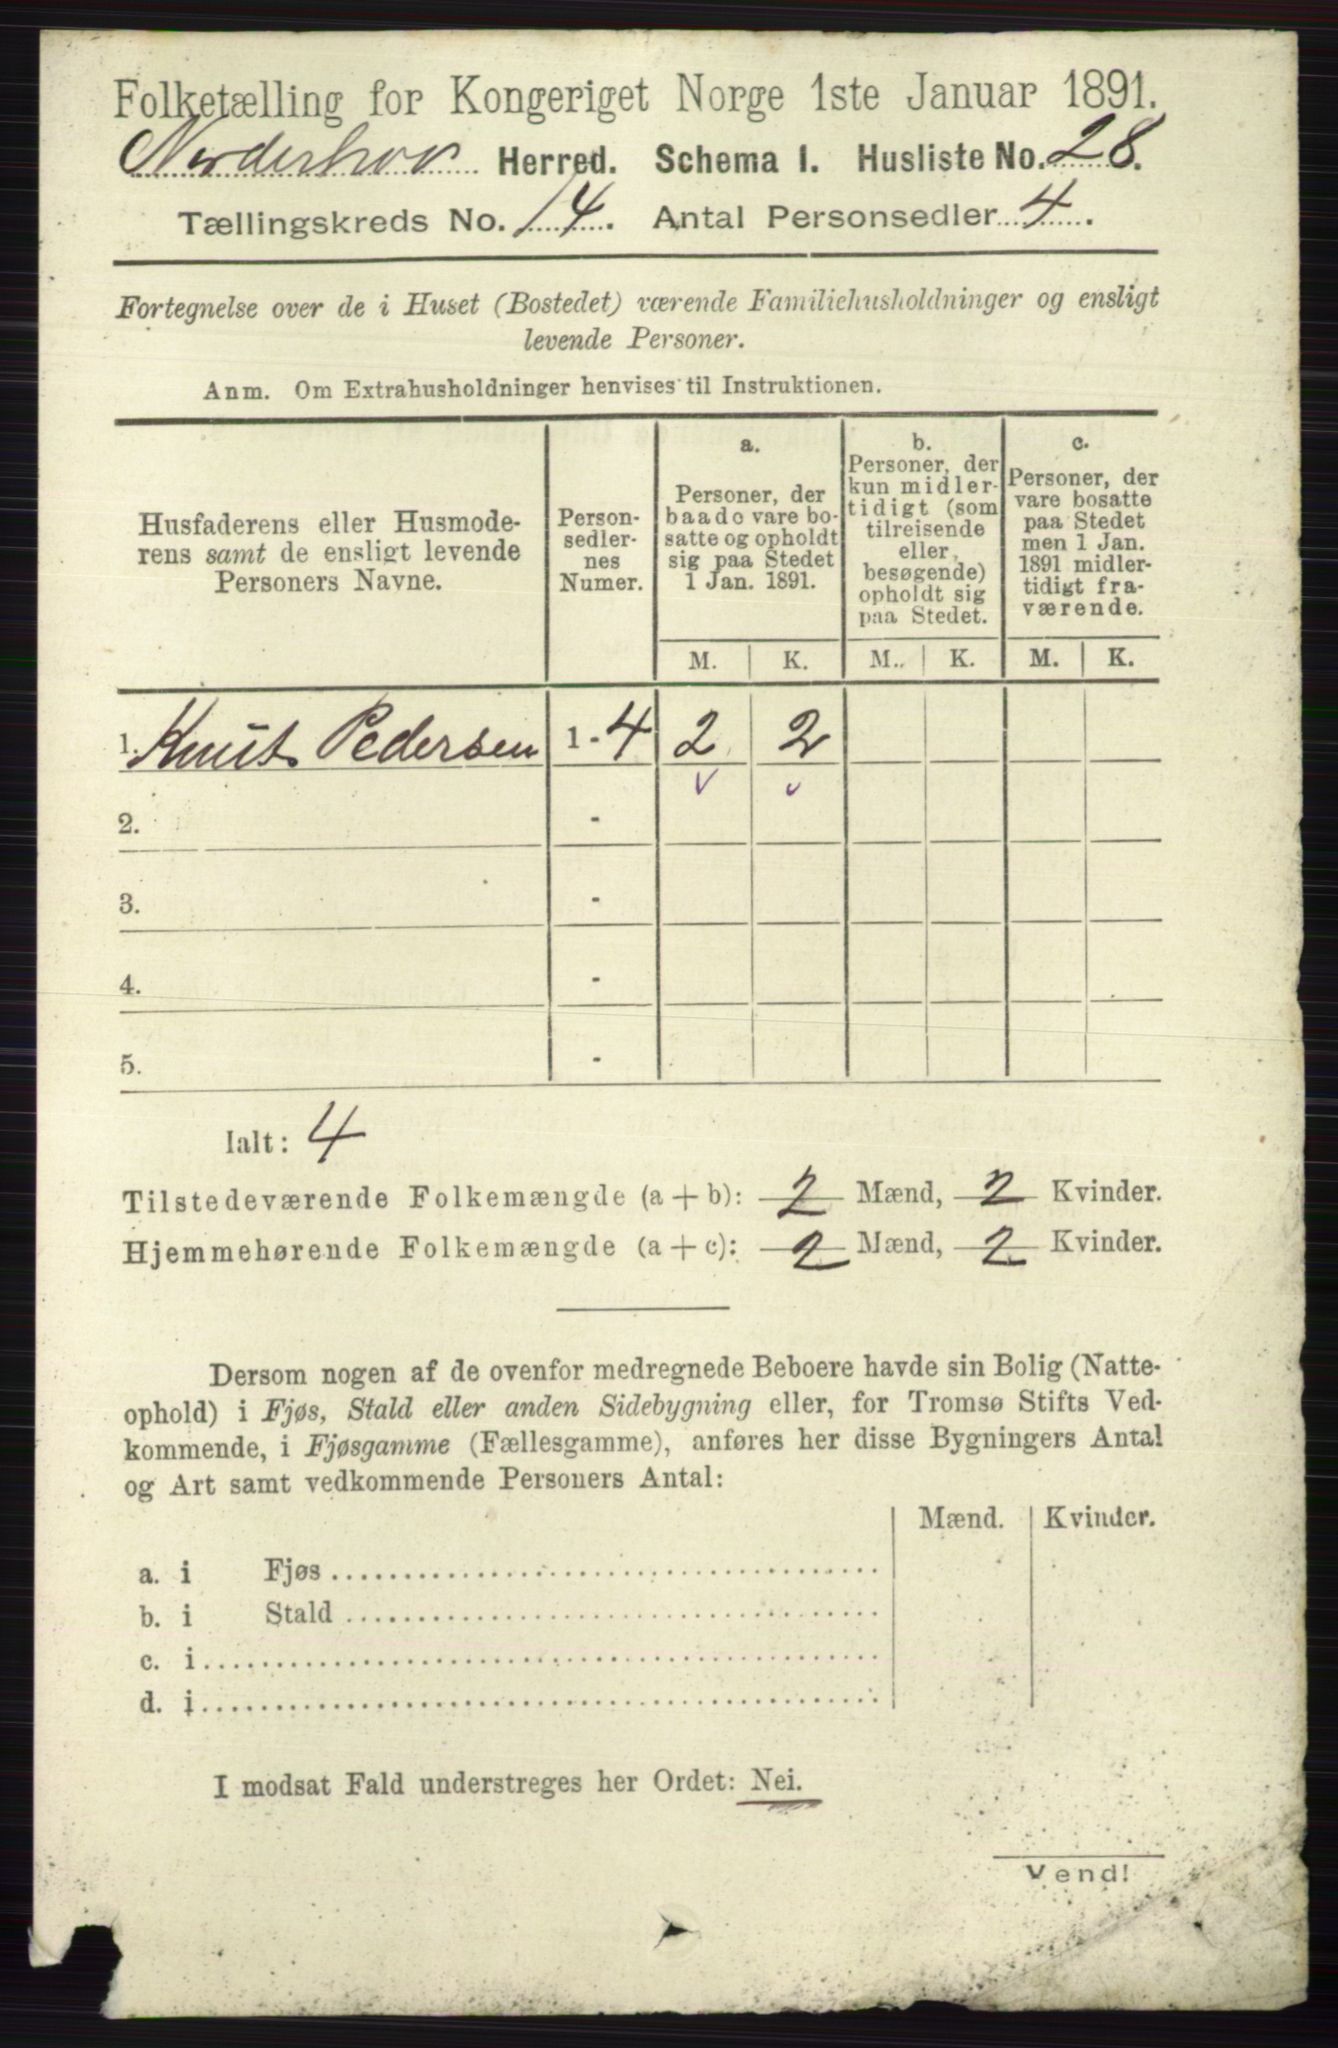 Folketælling for Kongeriget Norge 1ste Januar 1891.
Norderhov Herred. Schema 1. Husliste No. 28.
Tællingskreds No. 14. Antal Personsedler 4.
Fortegnelse over de i Huset (Bostedet) værende Familiehusholdninger og ensligt
levende Personer.
Anm. Om Extrahusholdninger henvises til Instruktionen.
Husfaderens eller Husmode-
rens samt de ensligt levende
Personers Navne.
Person-
sedler-
nes
Numer.
a.
Personer, der
baade vare bo-
satte og opholdt
sig paa Stedet
1 Jan. 1891.
b.
Personer, der
kun midler-
tidigt (som
tilreisende
eller
besøgende)
opholdt sig
paa Stedet.
c.
Personer, der
vare bosatte
paa Stedet
men 1 Jan.
1891 midler-
tidigt fra-
værende.
M. K. M. K. M. K.
1. Knut Pedersen 1 - 4 2 2
2. -
3. -
4. -
5. -
Ialt: 4
Tilstedeværende Folkemængde (a + b): 2 Mænd, 2 Kvinder.
Hjemmehørende Folkemængde (a + c): 2 Mænd, 2 Kvinder.
Dersom nogen af de ovenfor medregnede Beboere havde sin Bolig (Natte-
ophold) i Fjøs, Stald eller anden Sidebygning eller, for Tromsø Stifts Ved-
kommende, i Fjøsgamme (Fællesgamme), anføres her disse Bygningers Antal
og Art samt vedkommende Personers Antal:
Mænd. Kvinder.
a. i Fjøs
b. i Stald
c. i
d. i
I modsat Fald understreges her Ordet: Nei.
Vend!